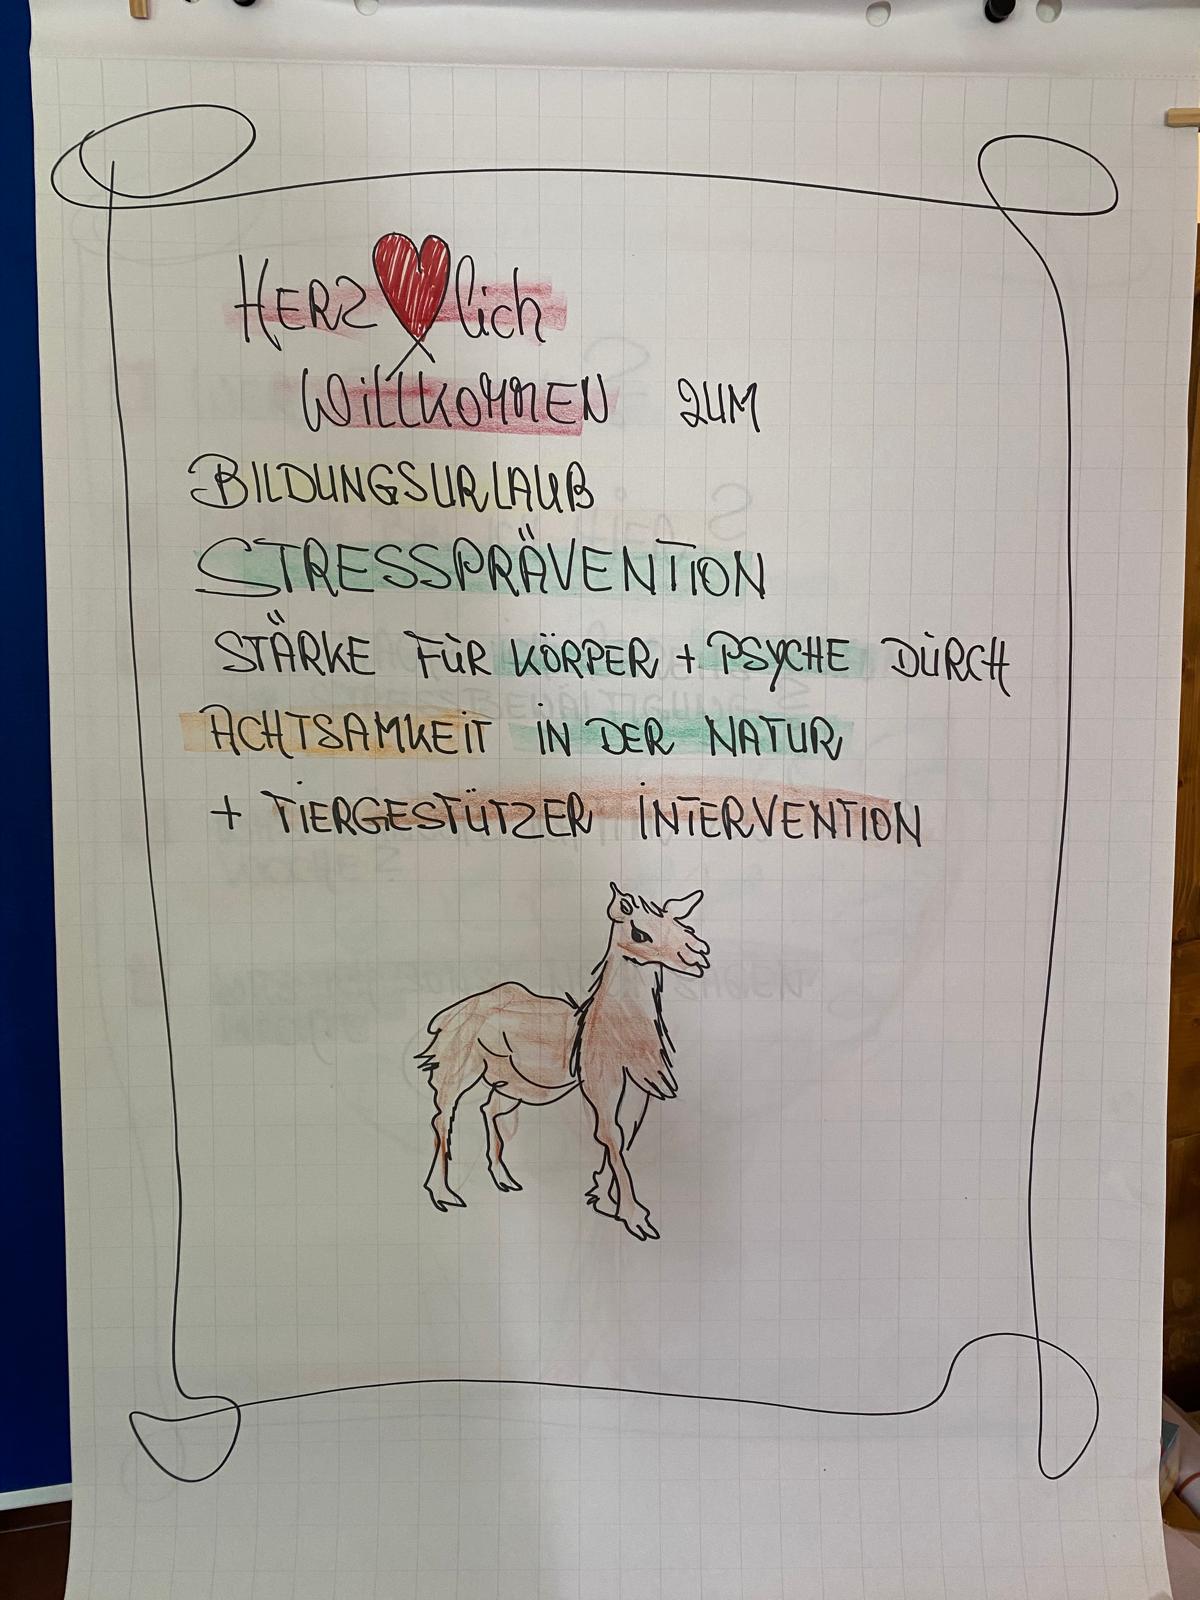 HERZ lich
WillKOMMEN ZUM
BILDUNGSURLAUB
STRESSPRÄVENTION
STÄRKE FÜR KÖRPER + PSYCHE DURCH
ACHTSAMKEIT IN DER NATUR
+ TIERGESTÜTZER INTERVENTION